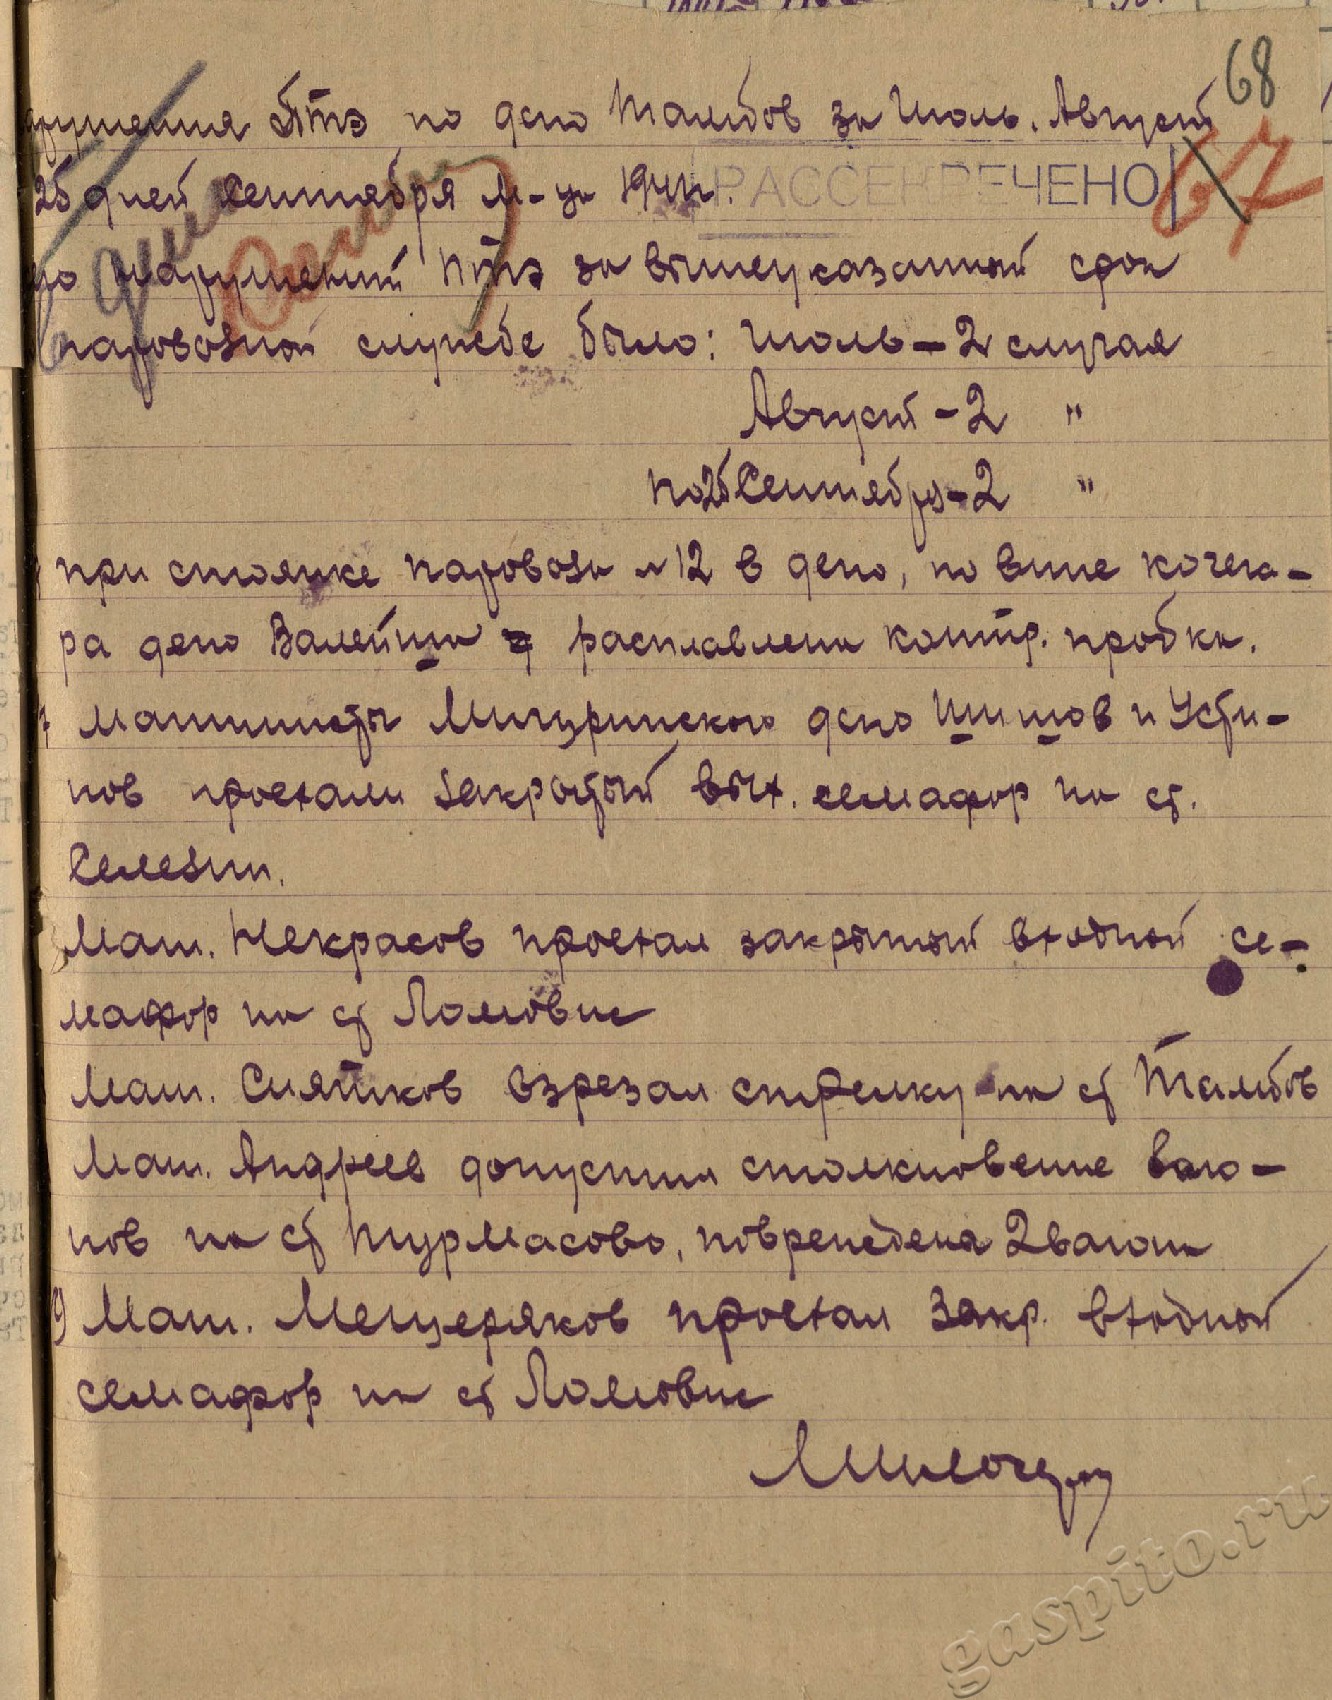 68
рушения ПТЭ по депо Тамбов за Июль. Август
67
25 дней Сентября м-ца 1941г.
РАССЕКРЕЧЕНО
нарушений ПТЭ за вышеуказанный срок
паровозной службе было: Июль - 2 случая
Август - 2 "
По 25 Сентября - 2 "
при стоянке паровоза №12 в депо, по вине кочега-
ра депо расплавлена контр. пробка.
Машинисты Мичуринского депо Шишов и Усти-
нов проехали закрытый вых. семафор на ст.
Селезни.
Маш. Некрасов проехал закрытый входной се-
мафор на ст Ломовис
Маш. Сияпков взрезал стрелку на ст Тамбов
Маш. Андреев допустил столкновение ваго-
нов на ст Турмасово, повреждена 2 вагона
Маш. Мещеряков проехал закр. входной
семафор на ст Ломовис
gaspito.ru